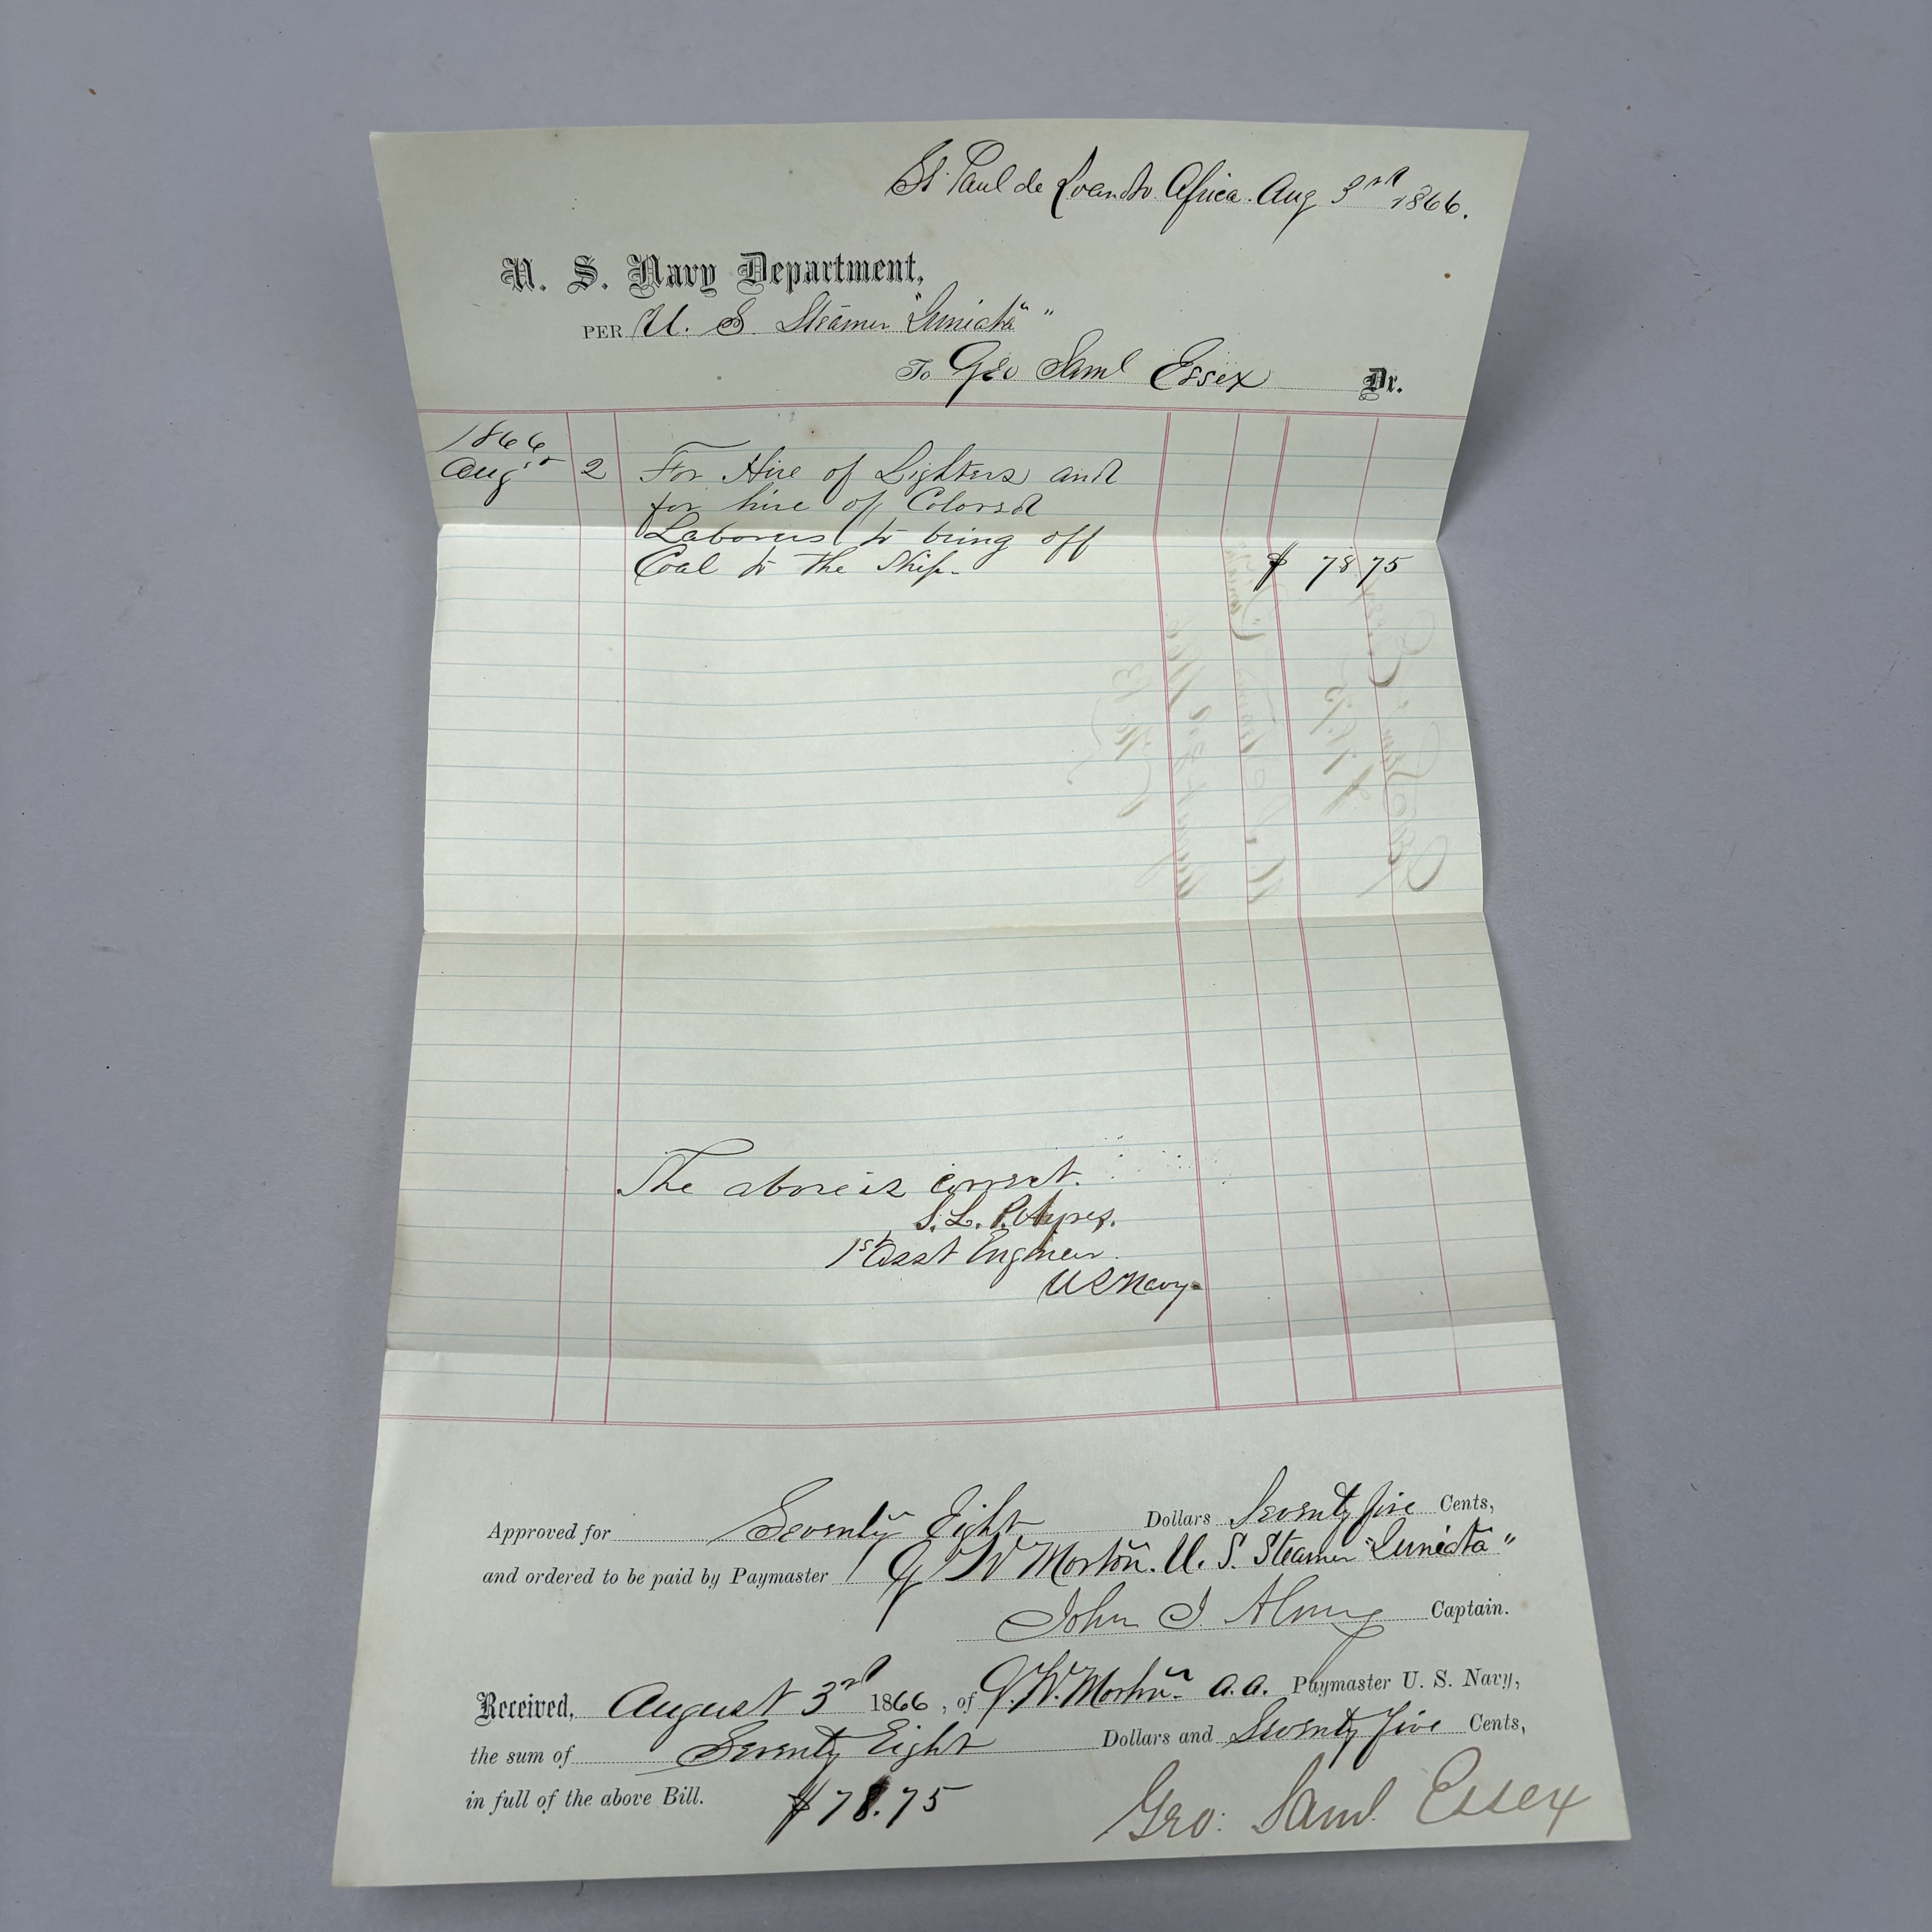 St. Paul de Loando. Africa. Aug 3rd 1866.
U. S. Navy Department,
PER U. S Steamer "Juniata"
To Geo Saml Essex Dr.
1866
Augst 2 For Hire of Lighters and
for hire of Colored
Laborers to bring off
Coal to the Ship. $ 78 75
The above is correct.
S. L. P. Ayres.
1st Asst Engineer.
U S Navy.
Approved for Seventy Eight Dollars Seventy five Cents,
and ordered to be paid by Paymaster G W Morton. U. S. Steamer "Juniata"
John J. Almy Captain.
Received, August 3rd 1866, of G. W. Morton. a. a. Paymaster U. S. Navy,
the sum of Seventy Eight Dollars and Seventy Five Cents,
in full of the above Bill. $78.75
Geo: Saml. Essex